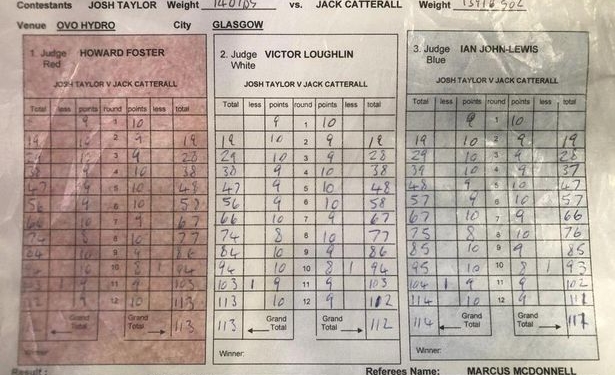 Contestants JOSH TAYLOR Weight vs. JACK CATTERALL Weight
Venue OVO HYDRO City GLASGOW
1. Judge HOWARD FOSTER
Red
JOSH TAYLOR V JACK CATTERALL
Total less points round points less total
9 1 10
19 10 2 9 19
29 10 3 9 28
38 9 4 10 38
47 9 5 10 48
56 9 6 10 58
66 10 7 9 67
74 8 8 10 77
84 10 9 9 86
94 10 10 8 1 94
103 9 11 9 103
112 9 12 10 113
Grand Total Grand Total 113
Winner:
2. Judge VICTOR LOUGHLIN
White
JOSH TAYLOR V JACK CATTERALL
Total less points round points less total
9 1 10
19 10 2 9 19
29 10 3 9 28
38 9 4 10 38
47 9 5 10 48
56 9 6 10 58
66 10 7 9 67
74 8 8 10 77
84 10 9 9 86
94 10 10 8 1 94
103 1 9 11 9 103
113 10 12 9 112
113 Grand Total Grand Total 112
Winner:
3. Judge IAN JOHN-LEWIS
Blue
JOSH TAYLOR V JACK CATTERALL
Total less points round points less total
9 1 10
19 10 2 9 19
29 10 3 9 28
39 10 4 9 37
48 9 5 10 47
57 9 6 10 57
67 10 7 9 66
75 8 8 10 76
85 10 9 9 85
95 10 10 8 1 93
104 1 9 11 9 102
114 10 12 9 111
114 Grand Total Grand Total 111
Winner:
Result: Referees Name: MARCUS MCDONNELL